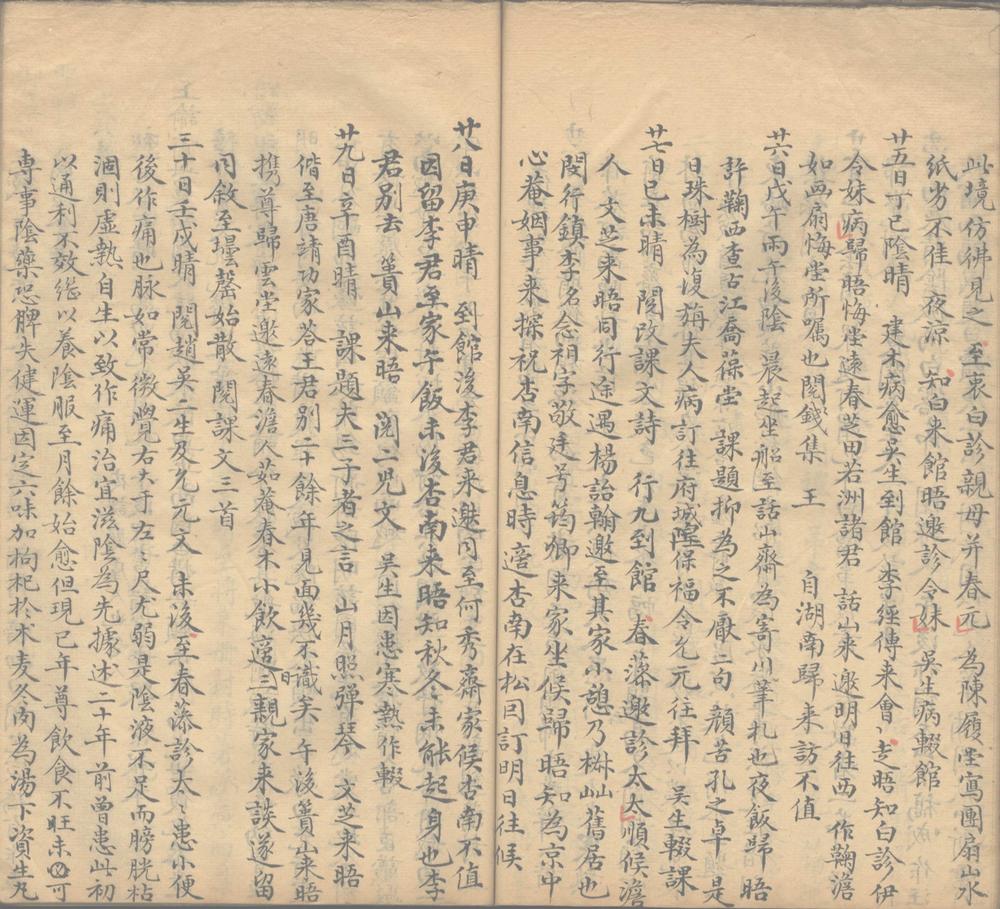 此境仿彿見之 至衷白診親母并春元 為陳履堂寫團扇山水
紙劣不佳 夜涼 知白来館晤邀診令妹 吳生病輟館
廿五日丁巳陰晴 建木病愈吳生到館 李經傳来會丶走晤知白診伊
令妹病歸晤悔堂遠春芝田若洲諸君 話山来邀明日往西 作鞠澹
如画扇悔堂所囑也閱錢集 王 自湖南歸来訪不值
廿六日戊午雨午後陰 晨起坐船至話山齋為寄川華札也夜飯歸 晤
許鞠西查古江喬葆堂 課題抑為之不厭二句 顏苦孔之卓 是
日珠樹為復旃夫人病訂往府城隍保福令允元往拜 吳生輟課
廿七日已未晴 閱改課文詩 行九到館 春藻邀診太太順候澹
人 文芝来晤同行途遇楊詒翰邀至其家小憩乃椒山舊居也
閔行鎮李名念祖字敬廷号筠卿来家坐候歸晤知為京中
心菴姻事来探祝杏南信息時適杏南在松囙訂明日往候
廿八日庚申晴 到館後李君来邀同至何秀齋家候杏南不值
因留李君至家午飯未後杏南来晤知秋冬未能起身也李
君別去 蕢山来晤 閱二児文 吳生因患寒熱作輟
廿九日辛酉晴 課題夫三子者之言 山月照彈琴 文芝来晤
偕至唐靖功家荅王君別二十餘年見面幾不識矣 午後蕢山来晤
携尊歸雲堂邀遠春澹人茹菴春木小飲適時三親家来談遂留
同敘至壜罄始散 閱課文三首
三十日壬戍晴 閱趙吳二生及允元文 未後至春藻診太丶患小便
後作痛也脉如常 微覺右大于左丶尺尤弱是陰液不足而膀胱粘
涸則虛熱自生以致作痛治宜滋陰為先據述二十年前曾患此初
以通利不效继以養陰服至月餘始愈但現已年尊飲食不旺未可
専事陰藥恐脾失健運因定六味加枸杞於术麦冬肉為湯下資生丸